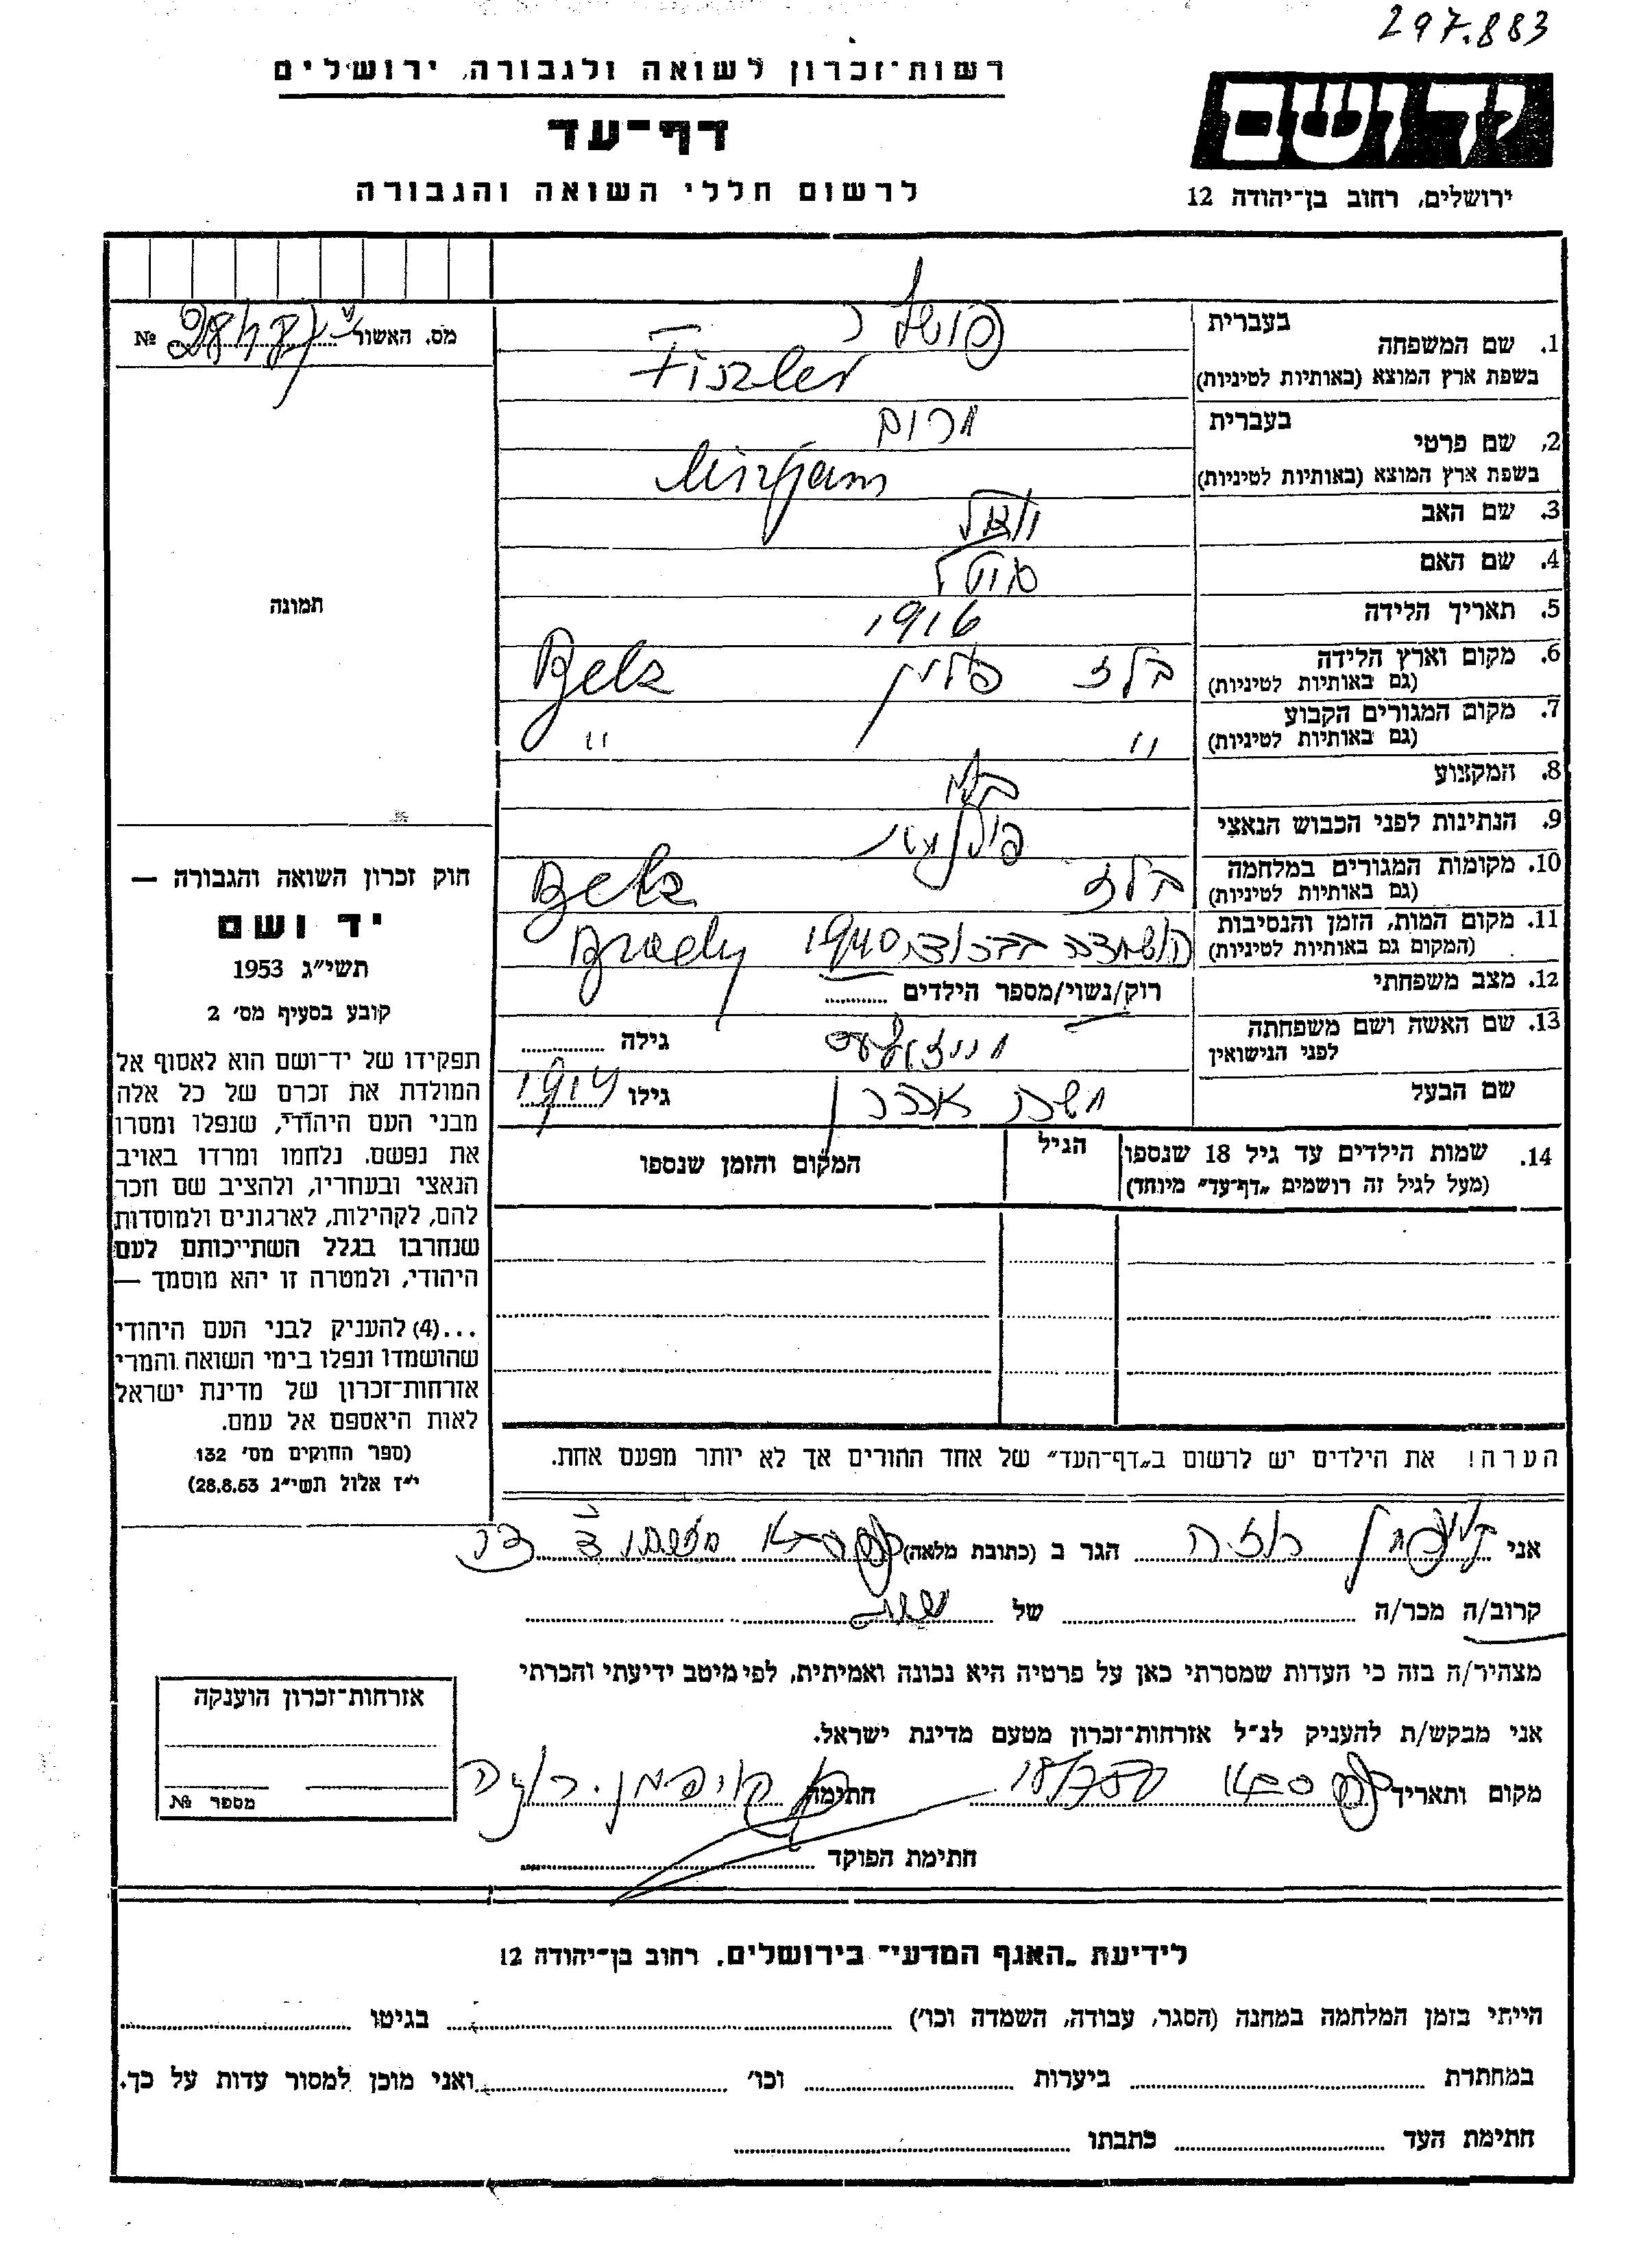 297.883
רשות־זכרון לשואה ולגבורה, ירושלים
יד ושם
דף־עד
לרשום חללי השואה והגבורה
ירושלים, רחוב בן־יהודה 12
מס. האשור № 
1. שם המשפחה
בעברית פישלר
בשפת ארץ המוצא (באותיות לטיניות) Fiszler
2. שם פרטי
בעברית מרים
בשפת ארץ המוצא (באותיות לטיניות) Mirjam
3. שם האב
4. שם האם
5. תאריך הלידה 1916
6. מקום וארץ הלידה בלז פולין Belz
(גם באותיות לטיניות)
7. מקום המגורים הקבוע " "
(גם באותיות לטיניות)
8. המקצוע
9. הנתינות לפני הכבוש הנאצי
10. מקומות המגורים במלחמה בלז Belz
(גם באותיות לטיניות)
11. מקום המות, הזמן והנסיבות הושמדה בברודי 1940 Brody
(המקום גם באותיות לטיניות)
12. מצב משפחתי רוק/נשוי/מספר הילדים
13. שם האשה ושם משפחתה
לפני הנישואין גילה
שם הבעל גילו 1914
14. שמות הילדים עד גיל 18 שנספו
(מעל לגיל זה רושמים „דף־עד" מיוחד)
הגיל
המקום והזמן שנספו
תמונה
חוק זכרון השואה והגבורה —
יד ושם
תשי"ג 1953
קובע בסעיף מס' 2
תפקידו של יד־ושם הוא לאסוף אל
המולדת את זכרם של כל אלה
מבני העם היהודי, שנפלו ומסרו
את נפשם, נלחמו ומרדו באויב
הנאצי ובעחריו, ולהציב שם וזכר
להם, לקהילות, לארגונים ולמוסדות
שנחרבו בגלל השתייכותם לעם
היהודי, ולמטרה זו יהא מוסמך —
...(4) להעניק לבני העם היהודי
שהושמדו ונפלו בימי השואה והמרי
אזרחות־זכרון של מדינת ישראל
לאות היאספם אל עמם.
(ספר החוקים מס' 132
י"ז אלול תשי"ג 28.8.53)
הערה! את הילדים יש לרשום ב„דף־העד" של אחד ההורים אך לא יותר מפעם אחת.
אני קויפמן רוזה הגר ב (כתובת מלאה) כפר סבא
קרוב/ה מכר/ה של
מצהיר/ה בזה כי העדות שמסרתי כאן על פרטיה היא נכונה ואמיתית, לפי מיטב ידיעתי והכרתי
אני מבקש/ת להעניק לנ"ל אזרחות־זכרון מטעם מדינת ישראל.
מקום ותאריך כפר סבא חתימה קויפמן
חתימת הפוקד
אזרחות־זכרון הוענקה
מספר №
לידיעת „האגף המדעי" בירושלים, רחוב בן־יהודה 12
הייתי בזמן המלחמה במחנה (הסגר, עבודה, השמדה וכו') בגיטו
במחתרת ביערות וכו' ואני מוכן למסור עדות על כך.
חתימת העד כתבתו